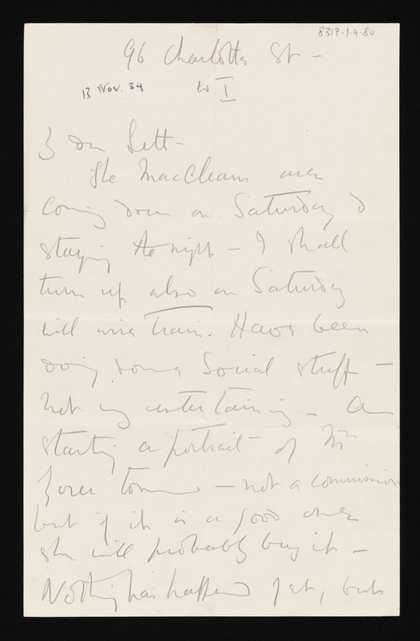 8317.1.4.80
96 Charlotte St -
13 Nov. 34
to I
Dear Lett -
The MacCleans are
coming down on Saturday &
staying the night - I shall
turn up also on Saturday
will wire train. Have been
doing some social stuff -
not very entertaining - Am
starting a portrait of Mrs
- not a commission
but if it is a good one
she will probably buy it -
Nothing has happened yet, but